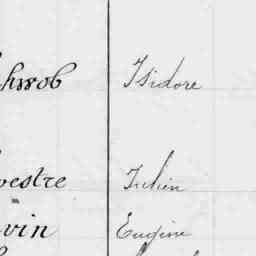 hwob Isidore
vestre Julien
vin Eugène